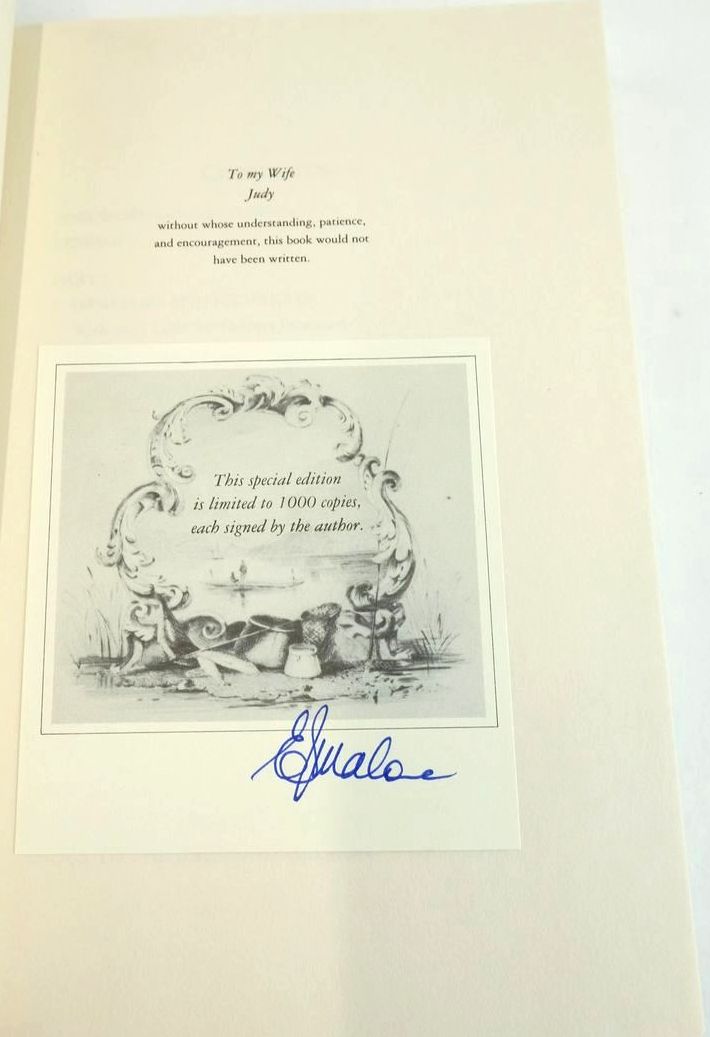 To my Wife
Judy
without whose understanding, patience,
and encouragement, this book would not
have been written.
This special edition
is limited to 1000 copies,
each signed by the author.